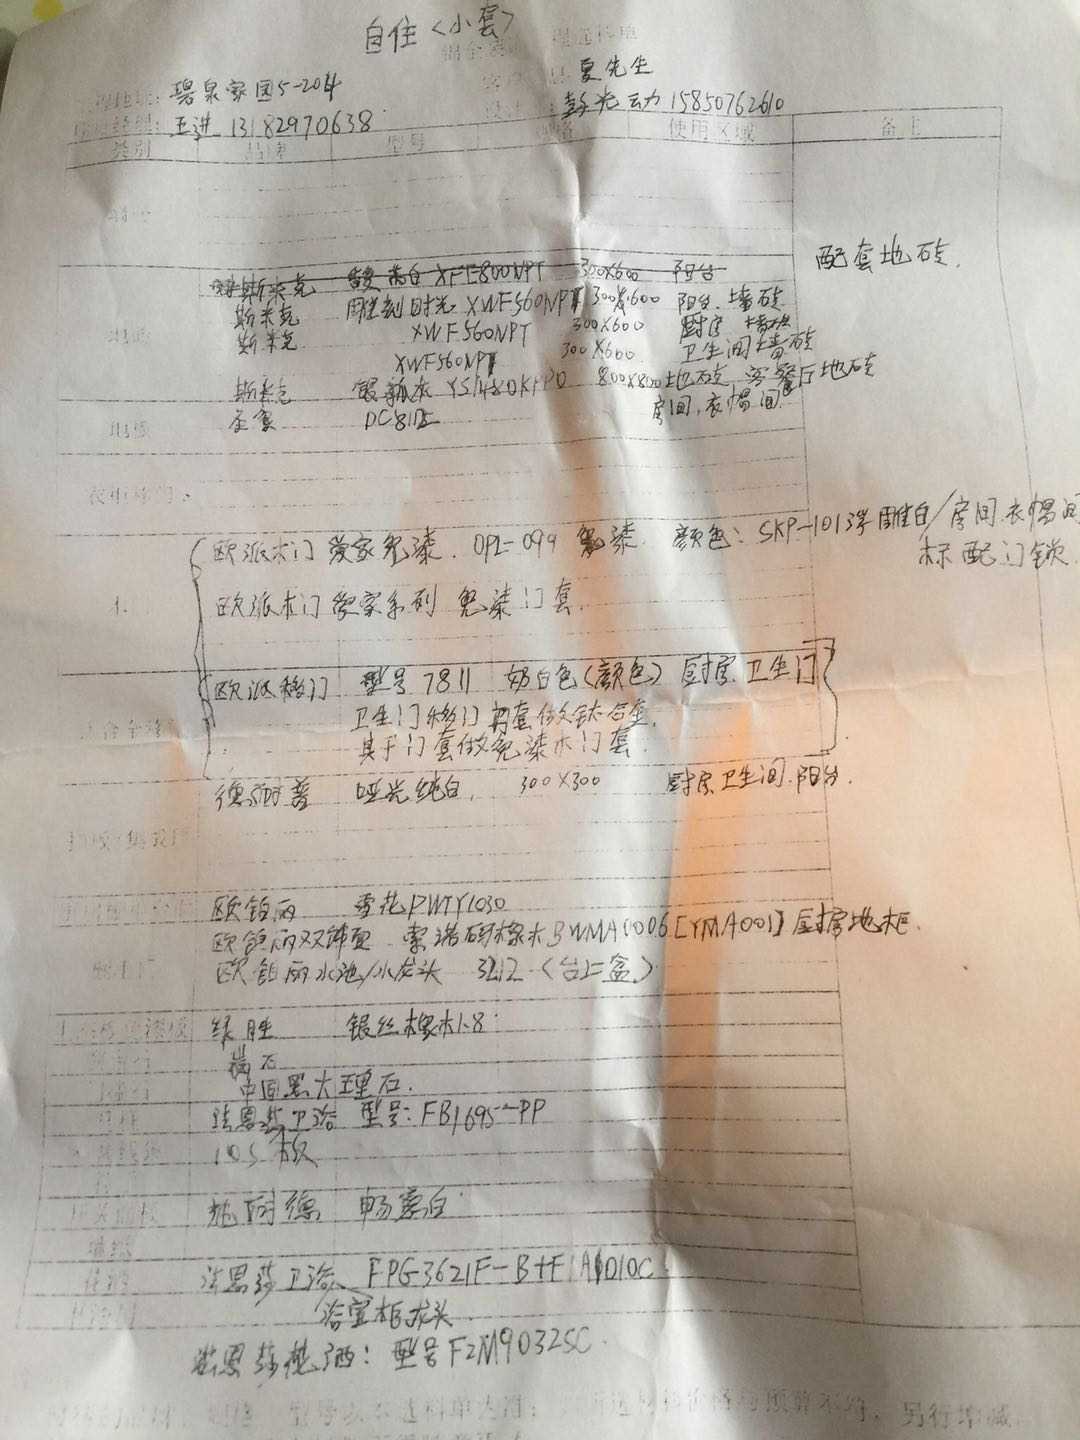 自住〈小套〉
碧泉家园5-204
夏先生
王进 13182970638
彭光动 15850762610
类别 品牌 型号 使用区域 备注
配套地砖.
斯米克 XFE800NPT 300X600 阳台
斯米克 雕刻时光 XWF560NPT 300X600 阳台.墙砖
斯米克 XWF560NPT 300X600 厨房
XWF560NPT 300X600 卫生间墙砖
斯米克 800X800地砖 客餐厅地砖
房间,衣帽间
圣象 DC8112
欧派木门 爱家免漆. OPL-099 免漆 颜色: SKP-101浮雕白/房间.衣帽间
标配门锁.
欧派木门 爱家系列 免漆门套.
欧派移门 型号 7811 奶白色(颜色) 厨房.卫生门
卫生门移门 套做钛合金.
其于门套做免漆木门套.
德耐普 哑光纯白, 300X300 厨房卫生间.阳台.
欧铂丽 雪花PWTY1030
欧铂丽双饰面 索诺码橡木BWMA1006[YMA001]厨房地柜.
欧铂丽水池/水龙头 3212 (台上盆)
绿胜 银丝橡木1-8
中国黑大理石.
法恩莎卫浴 型号: FB1695-PP
施耐德 畅意白
法恩莎卫浴 FPG3621F-B+F1A1010C
浴室柜龙头
法恩莎花洒: 型号F2M9032SC